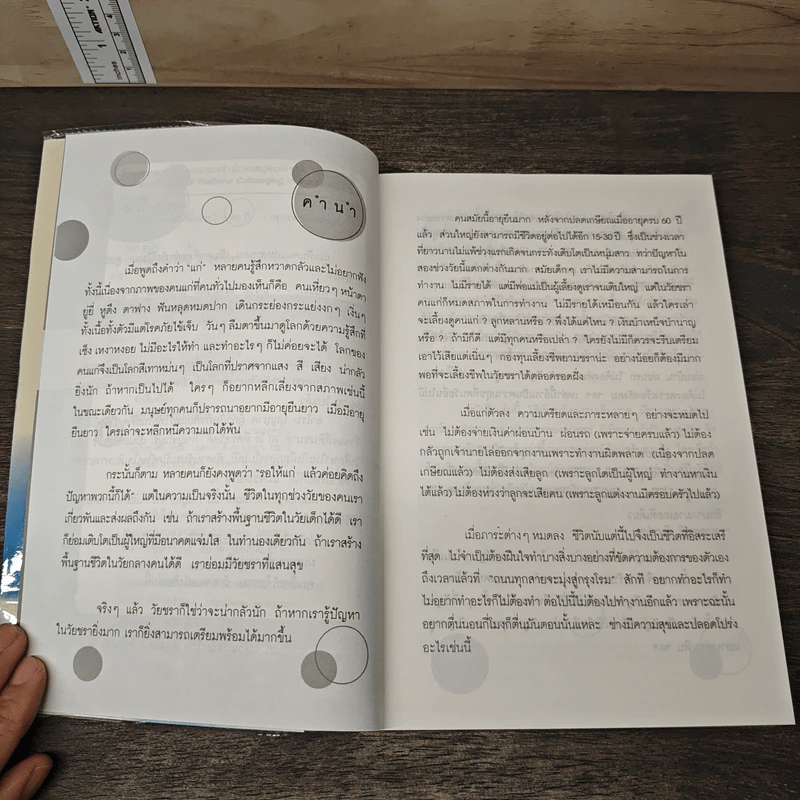 คำนำ
เมื่อพูดถึงคำว่า "แก่" หลายคนรู้สึกหวาดกลัวและไม่อยากฟัง
ทั้งนี้เนื่องจากภาพของคนแก่ที่คนทั่วไปมองเห็นก็คือ คนเหี่ยวๆ หน้าตา
ยู่ยี่ หูตึง ตาฟาง ฟันหลุดหมดปาก เดินกระย่องกระแย่งงกๆ เงิ่นๆ
ทั้งเนื้อทั้งตัวมีแต่โรคภัยไข้เจ็บ วันๆ ลืมตาขึ้นมาดูโลกด้วยความรู้สึกที่
เซ็ง เหงาหงอย ไม่มีอะไรให้ทำ และทำอะไรๆ ก็ไม่ค่อยจะได้ โลกของ
คนแก่จึงเป็นโลกสีเทาหม่นๆ เป็นโลกที่ปราศจากแสง สี เสียง น่ากลัว
ยิ่งนัก ถ้าหากเป็นไปได้ ใครๆ ก็อยากหลีกเลี่ยงจากสภาพเช่นนี้
ในขณะเดียวกัน มนุษย์ทุกคนก็ปรารถนาอยากมีอายุยืนยาว เมื่อมีอายุ
ยืนยาว ใครเล่าจะหลีกหนีความแก่ได้พ้น
กระนั้นก็ตาม หลายคนก็ยังคงพูดว่า "รอให้แก่ แล้วค่อยคิดถึง
ปัญหาพวกนี้ก็ได้" แต่ในความเป็นจริงนั้น ชีวิตในทุกช่วงวัยของคนเรา
เกี่ยวพันและส่งผลถึงกัน เช่น ถ้าเราสร้างพื้นฐานชีวิตในวัยเด็กได้ดี เรา
ก็ย่อมเติบโตเป็นผู้ใหญ่ที่มีอนาคตแจ่มใส ในทำนองเดียวกัน ถ้าเราสร้าง
พื้นฐานชีวิตในวัยกลางคนได้ดี เราย่อมมีวัยชราที่แสนสุข
จริงๆ แล้ว วัยชราก็ใช่ว่าจะน่ากลัวนัก ถ้าหากเรารู้ปัญหา
ในวัยชรายิ่งมาก เราก็ยิ่งสามารถเตรียมพร้อมได้มากขึ้น
คนสมัยนี้อายุยืนมาก หลังจากปลดเกษียณเมื่ออายุครบ 60 ปี
แล้ว ส่วนใหญ่ยังสามารถมีชีวิตอยู่ต่อไปได้อีก 15-30 ปี ซึ่งเป็นช่วงเวลา
ที่ยาวนานไม่แพ้ช่วงแรกเกิดจนกระทั่งเติบโตเป็นหนุ่มสาว ทว่าปัญหาใน
สองช่วงวัยนี้แตกต่างกันมาก สมัยเด็กๆ เราไม่มีความสามารถในการ
ทำงาน ไม่มีรายได้ แต่มีพ่อแม่เป็นผู้เลี้ยงดูเราจนเติบใหญ่ แต่ในวัยชรา
คนแก่ก็หมดสภาพในการทำงาน ไม่มีรายได้เหมือนกัน แล้วใครเล่า
จะเลี้ยงดูคนแก่ ? ลูกหลานหรือ ? พึ่งได้แค่ไหน ? เงินบำเหน็จบำนาญ
หรือ ? ถ้ามีก็ดี แต่มีทุกคนหรือเปล่า ? ใครยังไม่มีก็ควรจะรีบเตรียม
เอาไว้เสียแต่เนิ่นๆ กองทุนเลี้ยงชีพยามชราน่ะ อย่างน้อยก็ต้องมีมาก
พอที่จะเลี้ยงชีพในวัยชราได้ตลอดรอดฝั่ง
เมื่อแก่ตัวลง ความเครียดและภาระหลายๆ อย่างจะหมดไป
เช่น ไม่ต้องจ่ายเงินค่าผ่อนบ้าน ผ่อนรถ (เพราะจ่ายครบแล้ว) ไม่ต้อง
กลัวถูกเจ้านายไล่ออกจากงานเพราะทำงานผิดพลาด (เนื่องจากปลด
เกษียณแล้ว) ไม่ต้องส่งเสียลูก (เพราะลูกโตเป็นผู้ใหญ่ ทำงานหาเงิน
ได้แล้ว) ไม่ต้องห่วงว่าลูกจะเสียคน (เพราะลูกแต่งงานมีครอบครัวไปแล้ว)
เมื่อภาระต่างๆ หมดลง ชีวิตนับแต่นี้ไปจึงเป็นชีวิตที่อิสระเสรี
ที่สุด ไม่จำเป็นต้องฝืนใจทำบางสิ่งบางอย่างที่ขัดความต้องการของตัวเอง
ถึงเวลาแล้วที่ "ถนนทุกสายจะมุ่งสู่กรุงโรม" สักที อยากทำอะไรก็ทำ
ไม่อยากทำอะไรก็ไม่ต้องทำ ต่อไปนี้ไม่ต้องไปทำงานอีกแล้ว เพราะฉะนั้น
อยากตื่นนอนกี่โมงก็ตื่นมันตอนนั้นแหละ ช่างมีความสุขและปลอดโปร่ง
อะไรเช่นนี้